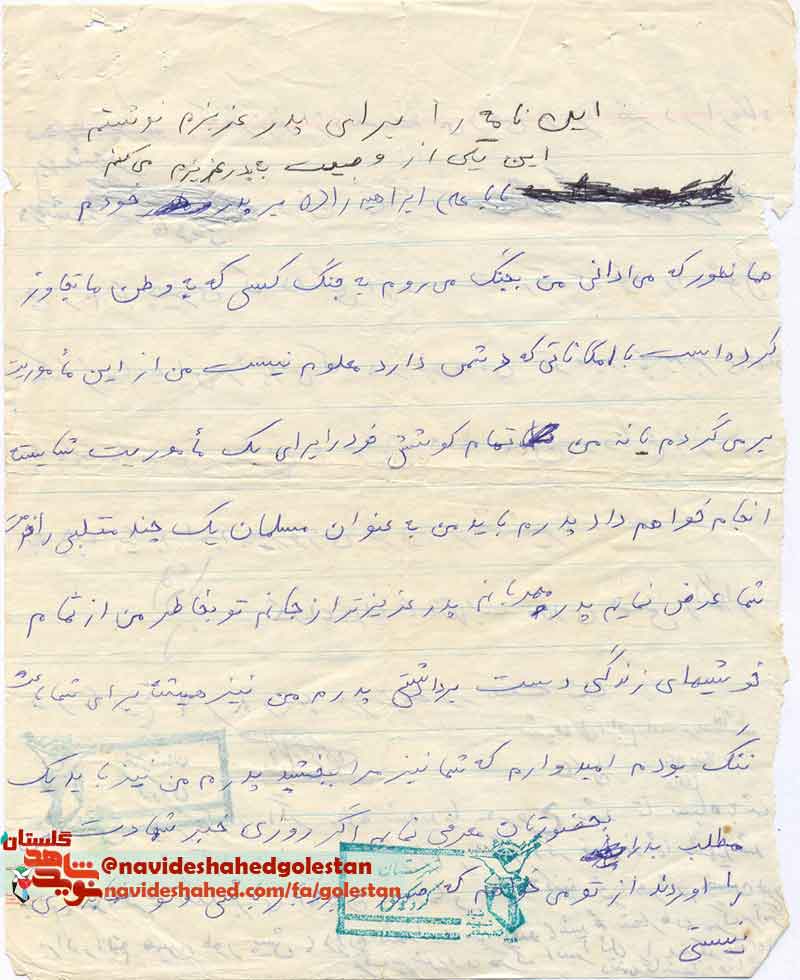 این نامه را برای پدر عزیزم نوشتم
این یکی از وصیت به پدر عزیزم می کنم
بابا علی ابراهیم زاده بر پدر خودم
هما نطور که می دانی من بجنگ می روم به جنگ کسی که به وطن ما تجاوز
کرده است با امکاناتی که دشمن دارد معلوم نیست من از این مأموریت
بر می گردم یا نه من تمام کوشش خود را برای یک مأموریت شایسته
انجام خواهم داد پدرم باید من به عنوان مسلمان یک چند متلبی را
شما عرض نمایم پدر مهربانم پدر عزیزتر از جانم تو بخاطر من از تمام
خوشیهای زندگی دست برداشتی پدرم من نیز همیشه برای شما باعث
ننگ بودم امیدوارم که شما نیز مرا ببخشید پدرم من نیز باید یک
مطلب بحضورتان معرفی نمایم اگر روزی خبر شهادت
را اوردند از تو می خواهم که
نیستی
گلستان
نوید شاهد
@navideshahedgolestan
navideshahed.com/fa/golestan